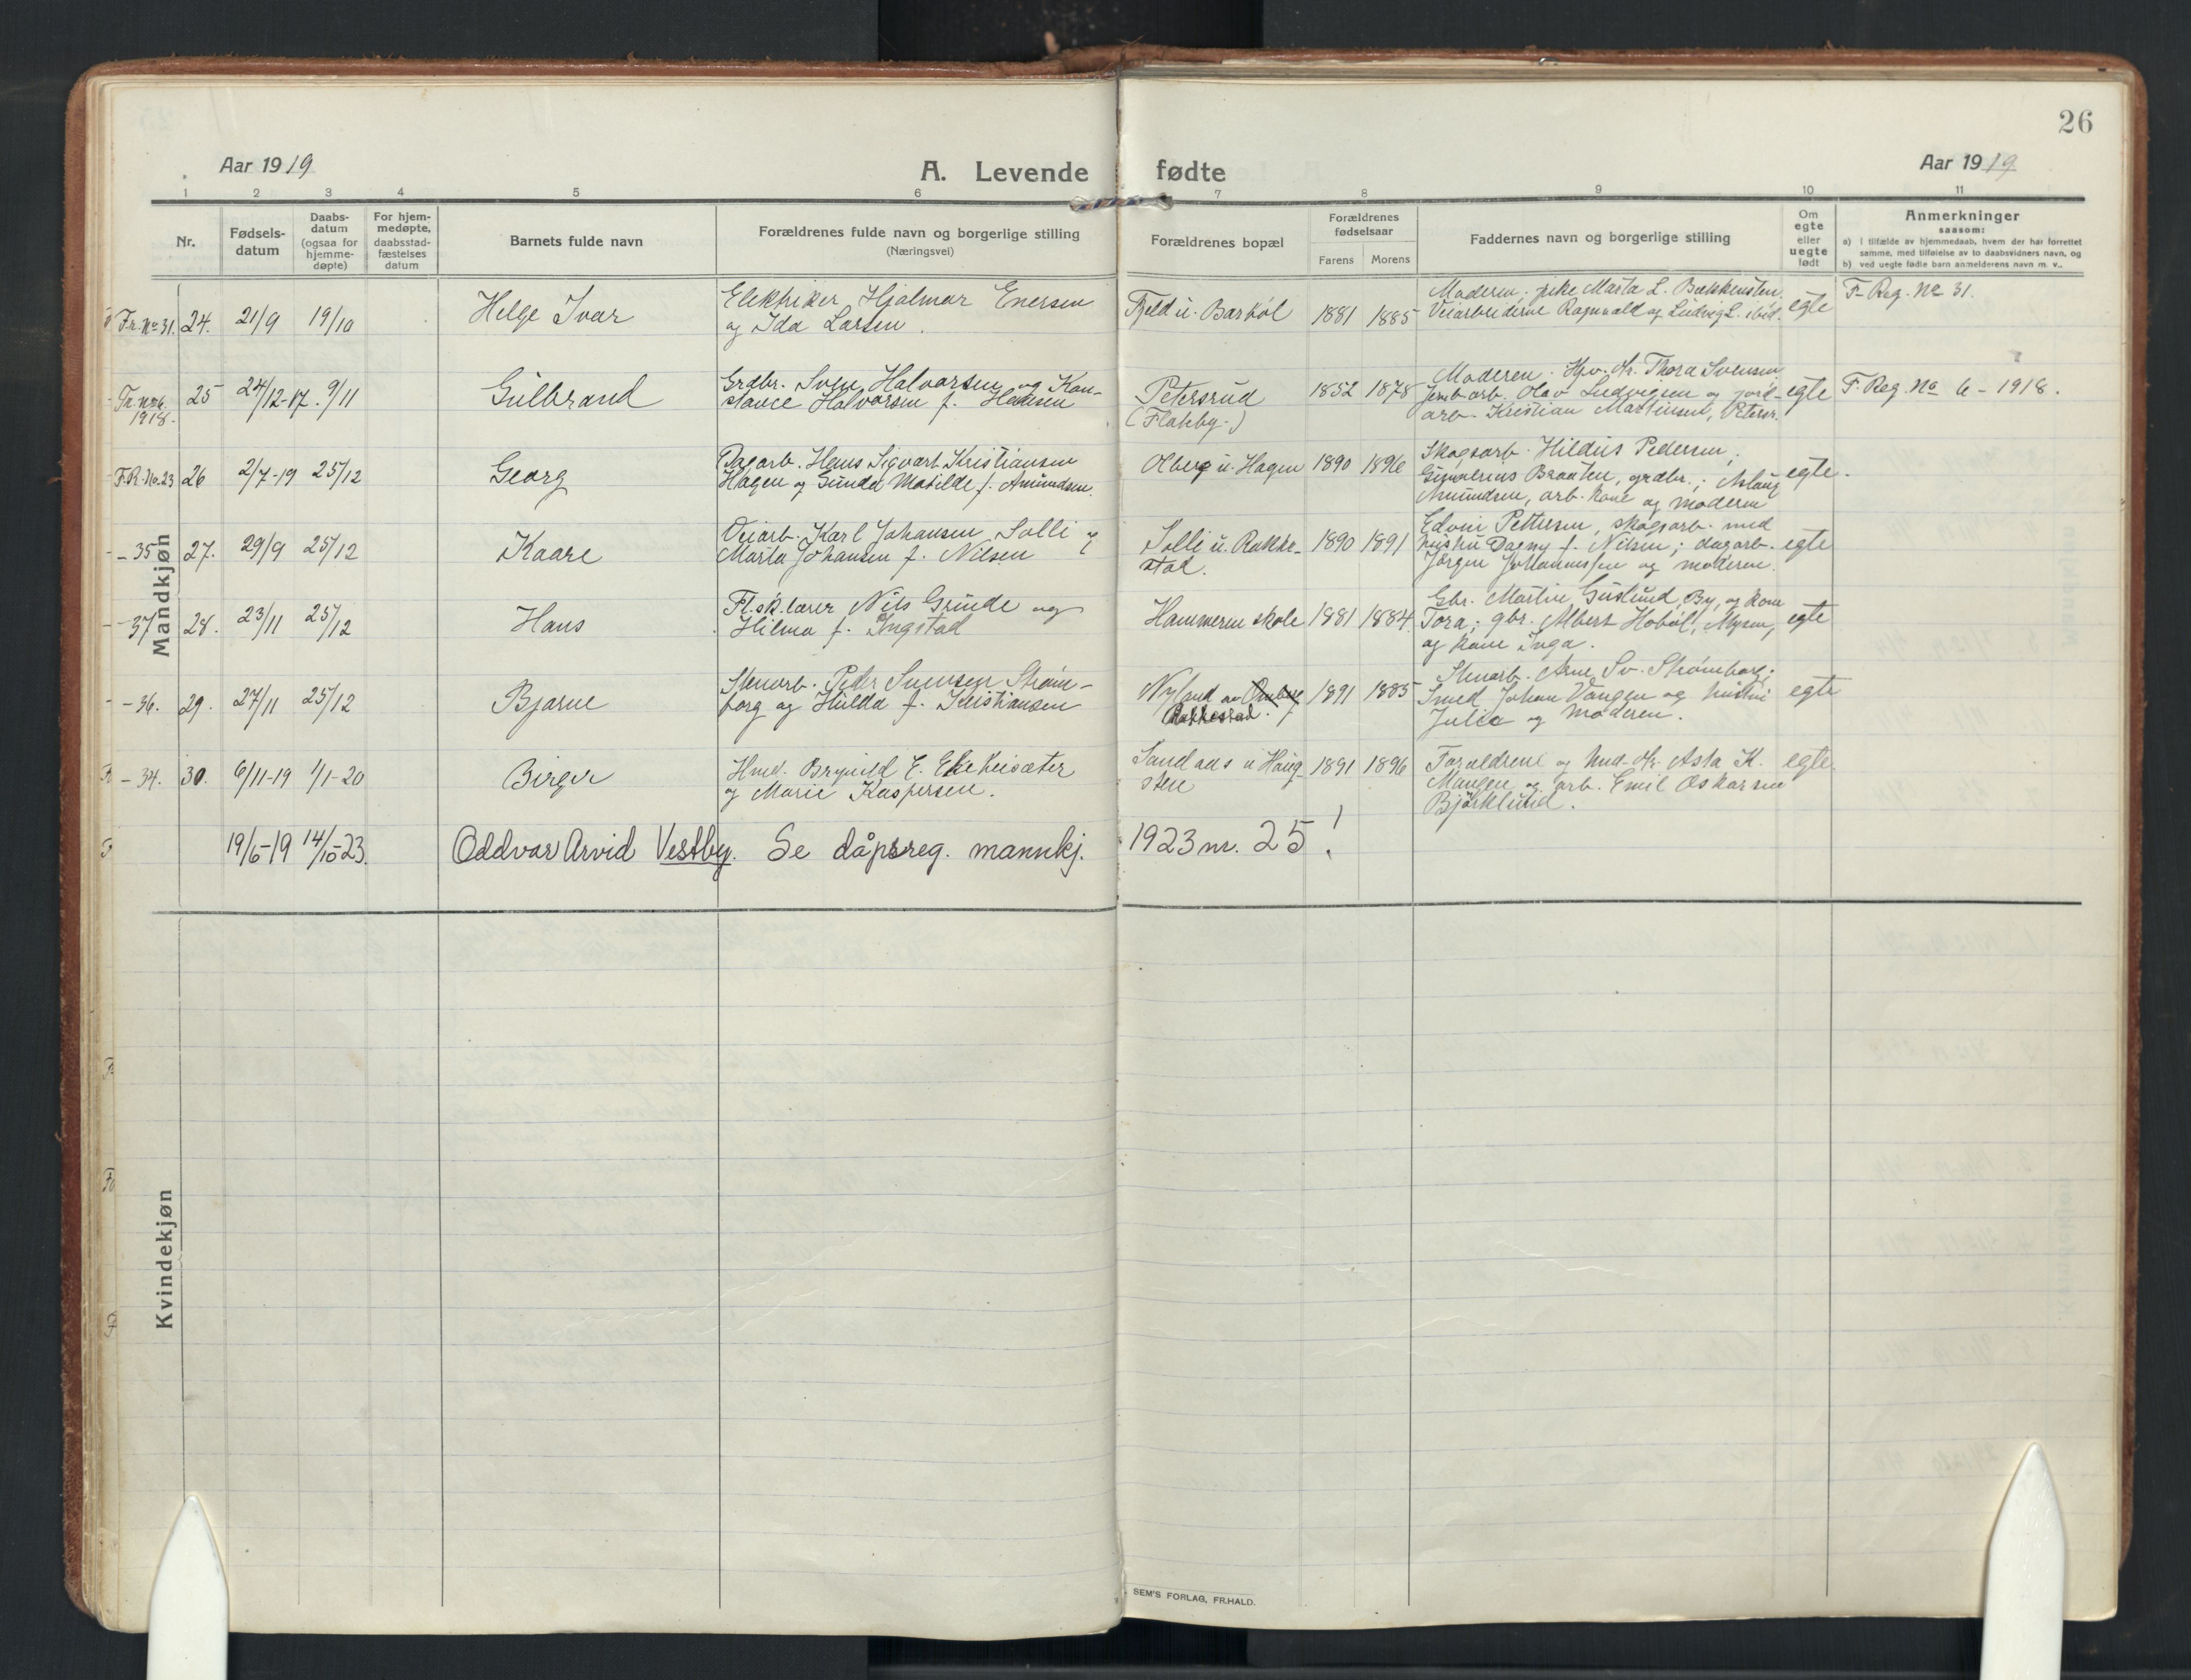 26
Aar 1919
A. Levende fødte
Aar 1919
1 2 3 4 5 6 7 8 9 10 11
Nr.
Fødsels-
datum
Daabs-
datum
(ogsaa for
hjemme-
døpte)
For hjem-
medøpte,
daabsstad-
fæstelses
datum
Barnets fulde navn
Forældrenes fulde navn og borgerlige stilling
(Næringsvei)
Forældrenes bopæl
Forældrenes
fødselsaar
Farens Morens
Faddernes navn og borgerlige stilling
Om
egte
eller
uegte
født
Anmerkninger
saasom:
a) i tilfælde av hjemmedaab, hvem der har forrettet
samme, med tilføielse av to daabsvidners navn, og
b) ved uegte fødte barn anmelderens navn m. v..
Mandkjøn
Fr. No 31. 24. 21/9 19/10
Helge Ivar
Elektriker Hjalmar Enersen
og Ida Larsen.
Fjeld u. Barbøl 1881 1885
Moderen, pike Marta L. Bækkensten,
Veiarbeiderne Ragnvald og Ludvig L. ibid.
egte
F-Reg. No 31.
Fr. No 6. 1918. 25 24/12-17. 9/11
Gulbrand
Grdbr. Sven Halvorsen og Kon-
stance Halvorsen f. Hansen
Petersrud
(Flateby.)
1852 1878
Moderen. Hpv. Kr. Thora Svensen
Jernb arb. Olav Ludvigsen og jord-
arb. Kristian Martinsen, Petersr.
egte
F. Reg. No 6 - 1918.
F.R. No. 23 26 2/7-19 25/12
Georg
Dagarb. Hans Sigvart Kristiansen
Hagen og Gunda Matilde f. Amundsen.
Olberg u. Hagen 1890 1896
Skogsarb. Hildus Pedersen,
Braaten, grdbr.; Aslaug
Amundsen, arb. kone og moderen
egte.
- 35 27. 29/9 25/12
Kaare
Veiarb. Karl Johansen Solli og
Marta Johansen f. Nilsen
Solli u. Rakke-
stad.
1890 1891
Edvin Pettersen, skogsarb. med
hustru Dagny f. Nilsen; dagarb.
Jørgen Johannessen og moderen.
egte
- 37 28. 23/11 25/12
Hans
Fl.sk.lærer Nils Grinde og
Hilma f. Ingstad
Hammeren skole 1881 1884
Gbr. Martin Guslund, By, og kone
Tora; gbr. Albert Hobøl, Mysen,
og kone Inga.
egte
- 36. 29. 27/11 25/12
Bjarne
Stenarb. Peder Svensen Strøm-
borg og Hulda f. Kristiansen
Nyland av
Rakkestad.
1891 1885
Stenarb. Arne Sv. Strømborg;
Smed Johan Vangen og hustru
Julia og moderen.
egte
- 34. 30. 6/11-19 1/1-20
Birger
Hmd. Brynild E. Ekeheisæter
og Marie Kaspersen.
Sandaas u Haug-
sten
1891 1896
Forældrene og hmd. Asta K.
Mangen og arb. Emil Oskarsen
Bjørklund.
egte.
19/5-19 14/10-23.
Oddvar Arvid Vestby. Se dåpsreg. mannkj. 1923 nr. 25!
Kvindekjøn
SEM'S FORLAG, FR.HALD.